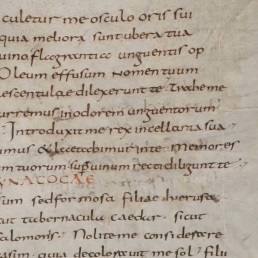 culetur me osculo oris sui
quia meliora sunt ubera tua
uino flagrantior unguentis op
Oleum effusum nomen tuum
lescentulae dilexerunt te Trahe me
urremus in odorem unguentorum
Introduxit me rex in cellaria sua
imus & laetabimur in te Memores
um tuorum sup uinum recti diligunt te
YNAGOGAE
sum sed formosa filiae hierusa
cut tabernacula caedar sicut
salomonis Nolite me considerare
fusca sim quia decolorauit me sol filii